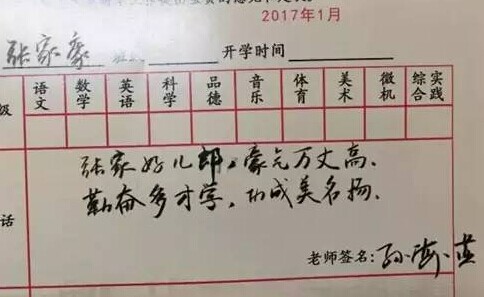 2017年1月
张家豪 开学时间
级 语文 数学 英语 科学 品德 音乐 体育 美术 微机 综合实践
张家好儿郎,豪元万丈高.
话 勤奋多才学,功成美名扬.
老师签名:孙海燕